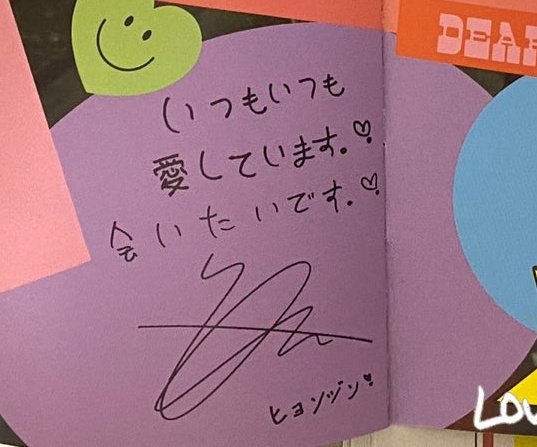 いつもいつも
愛しています。♡
会いたいです。♡
ヒョンヅン
DEAR
LOV